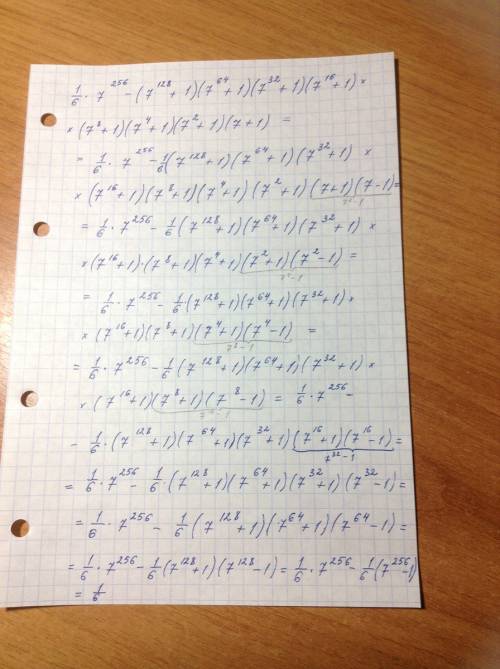 1/6 · 7^256 − (7^128 + 1)(7^64 + 1)(7^32 + 1)(7^16 + 1) ×
× (7^8 + 1)(7^4 + 1)(7^2 + 1)(7 + 1) =
= 1/6 · 7^256 − 1/6 (7^128 + 1)(7^64 + 1)(7^32 + 1) ×
× (7^16 + 1)(7^8 + 1)(7^4 + 1)(7^2 + 1)(7 + 1)(7 − 1) =
7^2 − 1
= 1/6 · 7^256 − 1/6 (7^128 + 1)(7^64 + 1)(7^32 + 1) ×
× (7^16 + 1) · (7^8 + 1)(7^4 + 1)(7^2 + 1)(7^2 − 1) =
= 1/6 · 7^256 − 1/6 (7^128 + 1)(7^64 + 1)(7^32 + 1) ×
× (7^16 + 1)(7^8 + 1)(7^4 + 1)(7^4 − 1) =
7^8 − 1
= 1/6 · 7^256 − 1/6 (7^128 + 1)(7^64 + 1)(7^32 + 1) ×
× (7^16 + 1)(7^8 + 1)(7^8 − 1) = 1/6 · 7^256 −
− 1/6 · (7^128 + 1)(7^64 + 1)(7^32 + 1)(7^16 + 1)(7^16 − 1) =
7^32 − 1
= 1/6 · 7^256 − 1/6 · (7^128 + 1)(7^64 + 1)(7^32 + 1)(7^32 − 1) =
= 1/6 · 7^256 − 1/6 (7^128 + 1)(7^64 + 1)(7^64 − 1) =
= 1/6 · 7^256 − 1/6 (7^128 + 1)(7^128 − 1) = 1/6 · 7^256 − 1/6 (7^256 − 1)
= 1/6